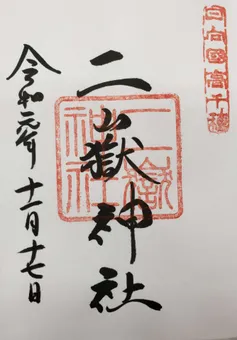 日向國高千穂
二嶽神社
二嶽
神社
令和元年十一月十七日